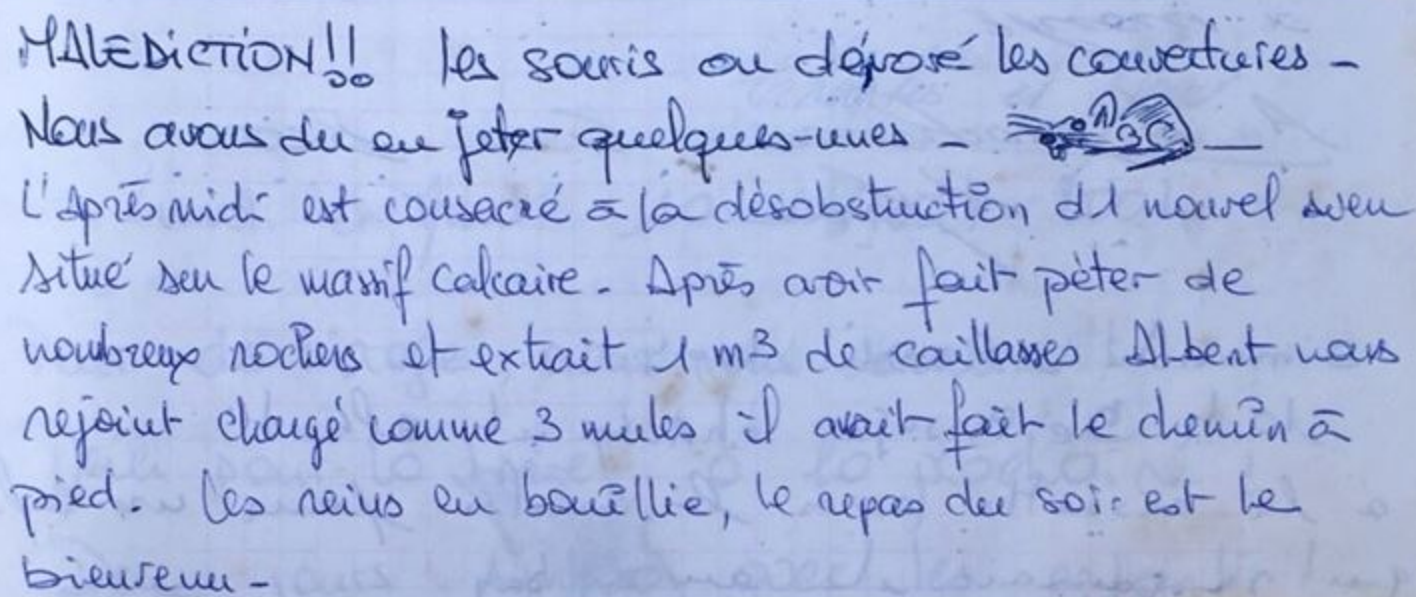 MALEDiCTiON!! les souris ou dévoré les couvertures -
Nous avons du en jeter quelques-unes -
L'Après midi est consacré à la désobstruction d1 nouvel aven
situé sur le massif calcaire. Après avoir fait pèter de
nombreux rochers et extrait 1 m3 de caillasses Albert nous
rejoint chargé comme 3 mules il avait fait le chemin à
pied. les reins en bouillie, le repas du soir est le
bienvenu -